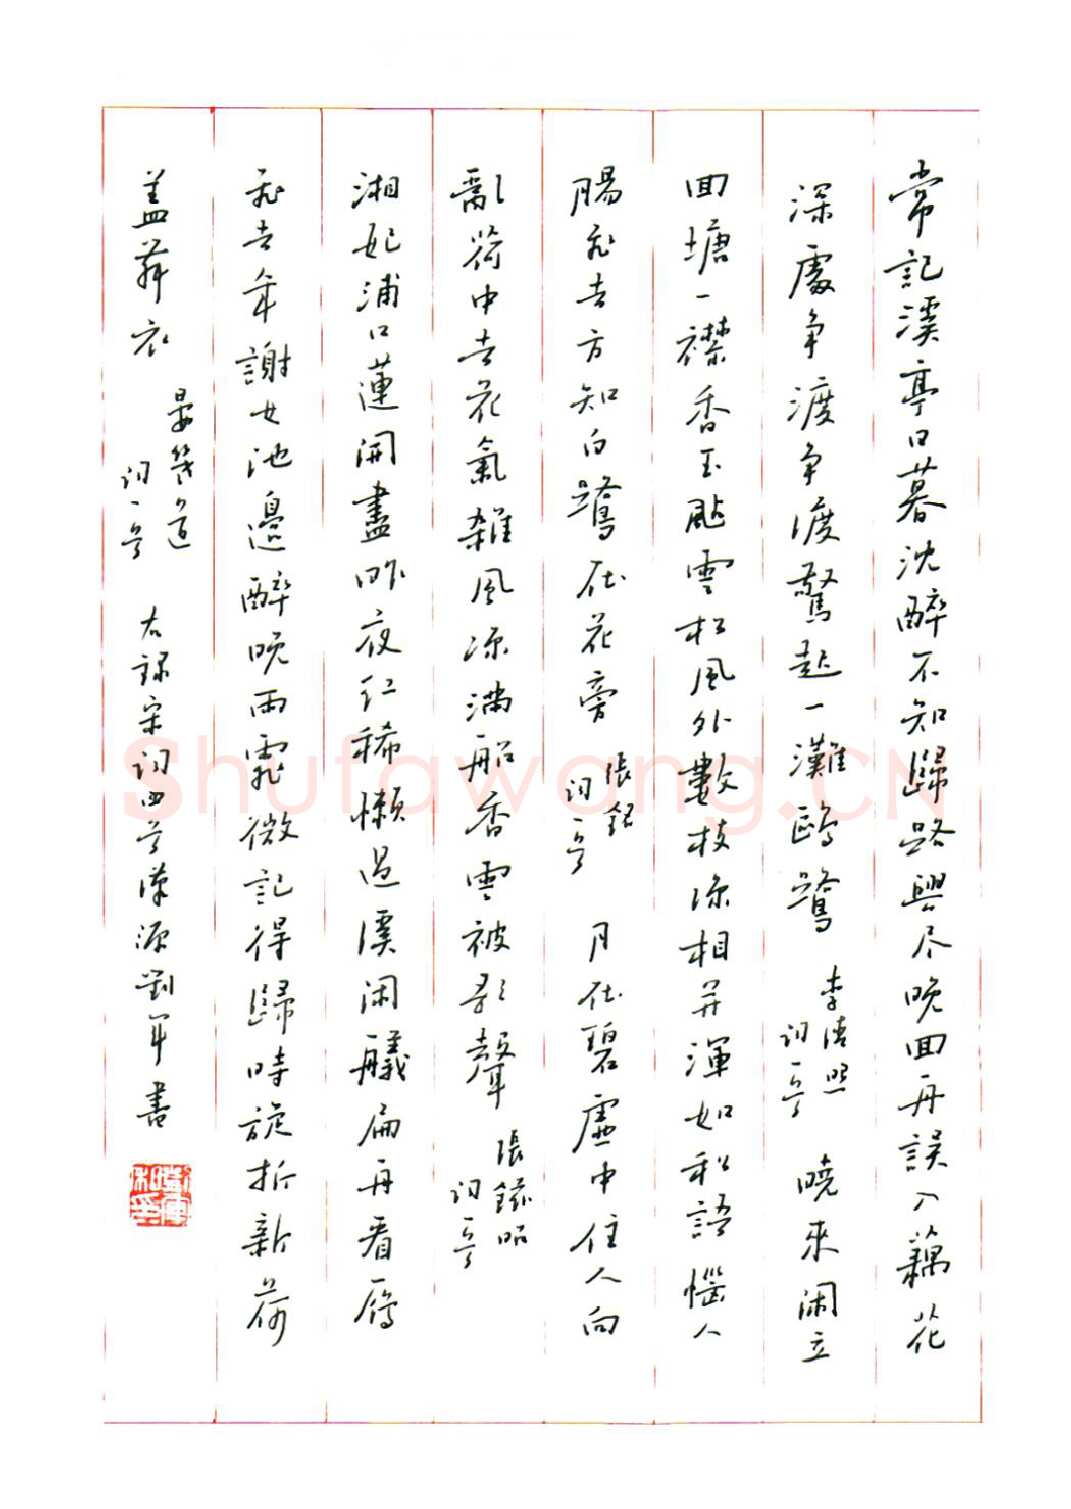 常記溪亭日暮沈醉不知歸路興尽晚回再誤入藕花
深處争渡争渡驚起一灘鷗鷺
李清照
詞一首
曉來闲立
回塘一襟香玉颭雲松風外數枝涼相并渾如私語惱人
腸飛去方知白鷺在花旁
張鎡
詞一首
月在碧虛中住人向
亂荷中去花氣雜風涼滿船香雲被歌聲
張鎡
詞一首
湘妃浦口蓮開盡昨夜红稀懒過溪闲艤扁舟看雁
飛去年謝女池邊醉晚雨霏微記得歸時旋折新荷
盖舞衣
晏幾道
詞一首
右録宋詞四首漢源劉军書
Shufawang.CN